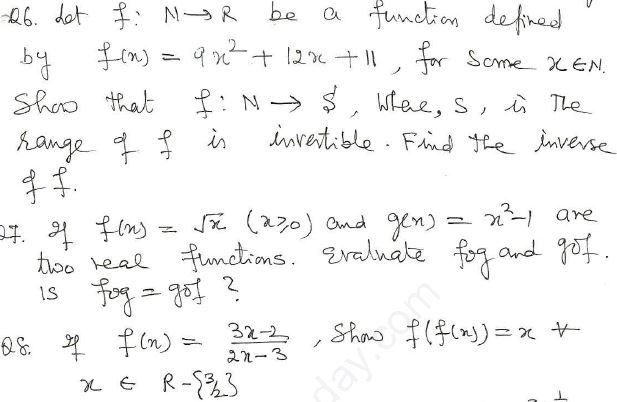 Q6. Let f : N→R be a function defined
by f(x) = 9x² + 12x + 11, for some x∈N.
Show that f : N → S, where, S, is The
range of f is invertible. Find the inverse
of f.
27. If f(x) = √x (x≥0) and g(x) = x²-1 are
two real functions. Evaluate fog and gof.
is fog = gof ?
Q8. If f(x) = 3x-2/2x-3, show f(f(x)) = x ∀
x ∈ R-{3/2}
day.com